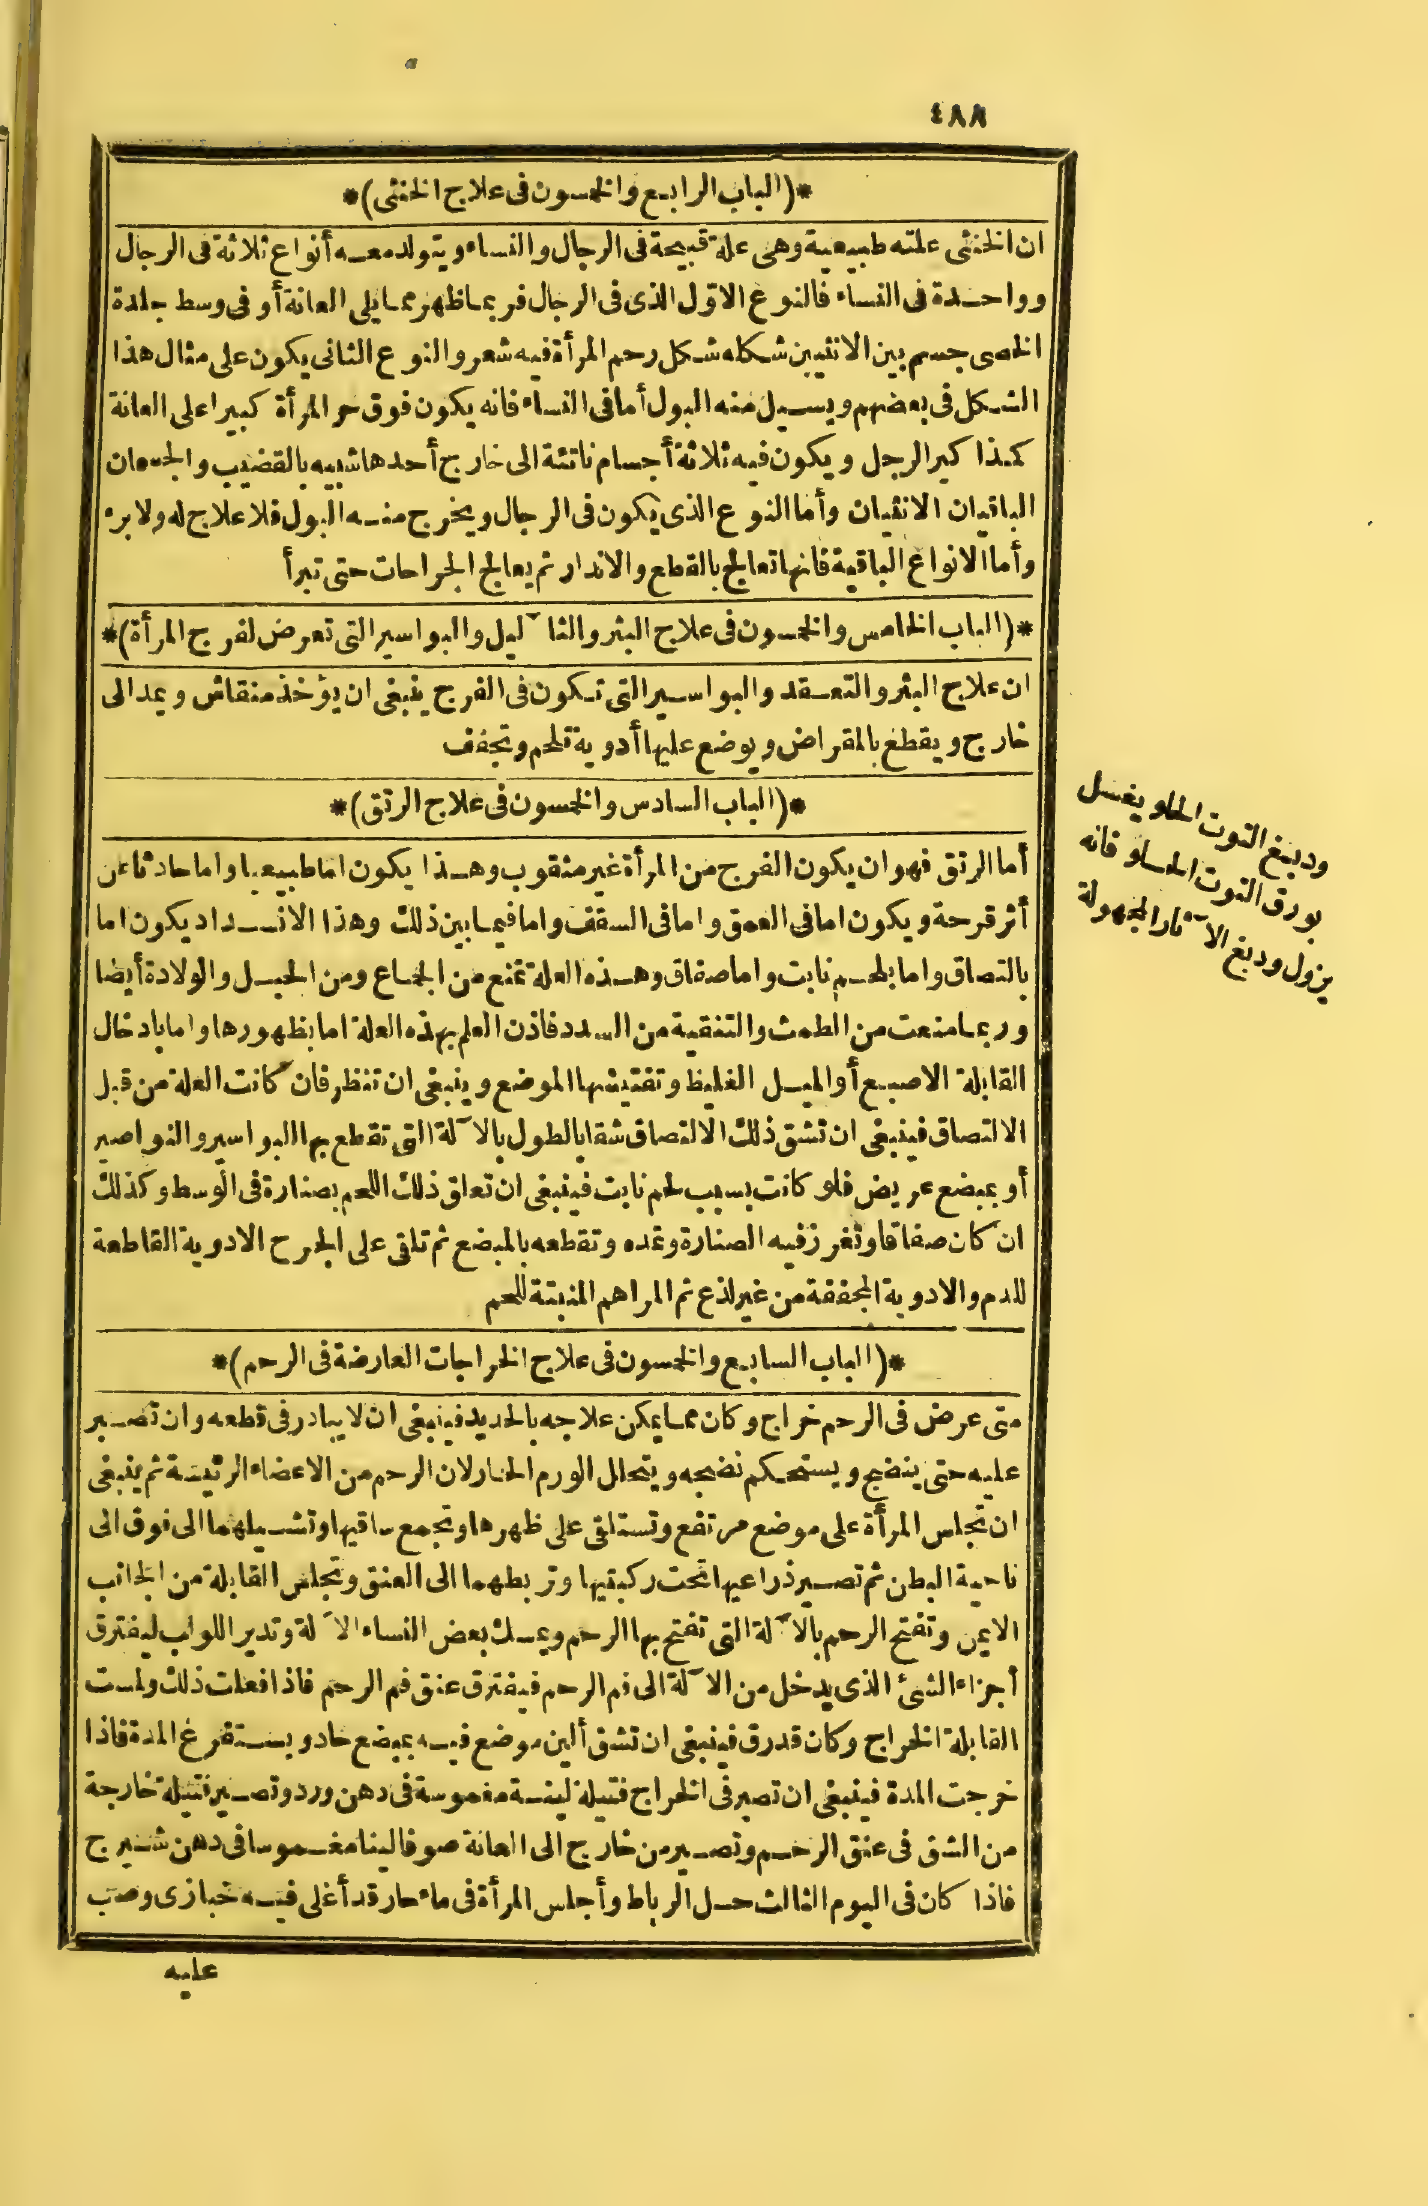 ٤٨٨
*(الباب الرابع والخمسون فى علاج الخنثى)*
ان الخنثى علته طبيعية وهى علة قبيحة فى الرجال والنساء ويتولد معه أنواع ثلاثة فى الرجال
وواحدة فى النساء فالنوع الاوّل الذى فى الرجال فربما ظهر مما يلى العانة أو فى وسط جلدة
الخصى جسم بين الانثيين شكله شكل رحم المرأة فيه شعر والنوع الثانى يكون على مثال هذا
الشكل فى بعضهم ويسيل منه البول أما فى النساء فانه يكون فوق حر المرأة كبيرا على العانة
كمذا كير الرجل ويكون فيه ثلاثة أجسام ناتئة الى خارج أحدها شبيه بالقضيب والجسمان
الباقيان الانثيان وأما النوع الذى يكون فى الرجال ويخرج منه البول فلا علاج له ولا برء
وأما الانواع الباقية فانها تعالج بالقطع والاندار ثم يعالج الجراحات حتى تبرأ
*(الباب الخامس والخمسون فى علاج البثر والثآ ليل والبواسير التى تعرض لفرج المرأة)*
ان علاج البثر والتعقد والبواسير التى تكون فى الفرج ينبغى ان يؤخذ منقاش ويمد الى
خارج ويقطع بالمقراض ويوضع عليها أدوية تلحم وتجفف
*(الباب السادس والخمسون فى علاج الرتق)*
أما الرتق فهو ان يكون الفرج من المرأة غير مثقوب وهذا يكون اما طبيعيا واما حادثا عن
أثر قرحة ويكون اما فى العمق واما فى السقف واما فيما بين ذلك وهذا الانسداد يكون اما
بالتصاق واما بلحم نابت واما صفاق وهذه العلة تمنع من الجماع ومن الحبل والولادة أيضا
وربما منعت من الطمث والتنقية من السدد فاذن العلم بهذه العلة اما بظهورها واما بادخال
القابلة الاصبع أو الميل الغليظ وتفتيشها الموضع وينبغى ان تنظر فان كانت العلة من قبل
الالتصاق فينبغى ان تشق ذلك الالتصاق شقا بالطول بالآلة التى تقطع بها البواسير والنواصير
أو بمبضع عريض فلو كانت بسبب لحم نابت فينبغى ان تعلق ذلك اللحم بصنارة فى الوسط وكذلك
ان كان صفاقا وتغرز فيه الصنارة وتمده وتقطعه بالمبضع ثم تلقى على الجرح الادوية القاطعة
للدم والادوية المجففة من غير لذع ثم المراهم المنبتة للحم
*(الباب السابع والخمسون فى علاج الخراجات العارضة فى الرحم)*
متى عرض فى الرحم خراج وكان مما يمكن علاجه بالحديد فينبغى ان لا يبادر فى قطعه وان تصبر
عليه حتى ينضج ويستحكم نضجه ويتحلل الورم الحار لان الرحم من الاعضاء الرئيسة ثم ينبغى
ان تجلس المرأة على موضع مرتفع وتستلقى على ظهرها وتجمع ساقيها وتشيلهما الى فوق الى
ناحية البطن ثم تصير ذراعيها تحت ركبتيها وتربطهما الى العنق وتجلس القابلة من الجانب
الايمن وتفتح الرحم بالآلة التى تفتح بها الرحم ويمسك بعض النساء الآلة وتدير اللولب ليفترق
أجزاء الشئ الذى يدخل من الآلة الى فم الرحم فيفترق عنق فم الرحم فاذا فعلت ذلك ولمست
القابلة الخراج وكان قد رق فينبغى ان تشق ألين موضع فيه بمبضع حاد ويستفرغ المدة فاذا
خرجت المدة فينبغى ان تصير فى الخراج فتيلة لينة مغموسة فى دهن ورد وتصير فتيلة خارجة
من الشق فى عنق الرحم وتصير من خارج الى العانة صوفا لينا مغموسا فى دهن شيرج
فاذا كان فى اليوم الثالث حل الرباط وأجلس المرأة فى ماء حار قد أغلى فيه خبازى وصب
عليه
ودبغ التوت الحلو يغسل
بورق التوت الحلو فانه
يزول ودبغ الآثار المجهولة